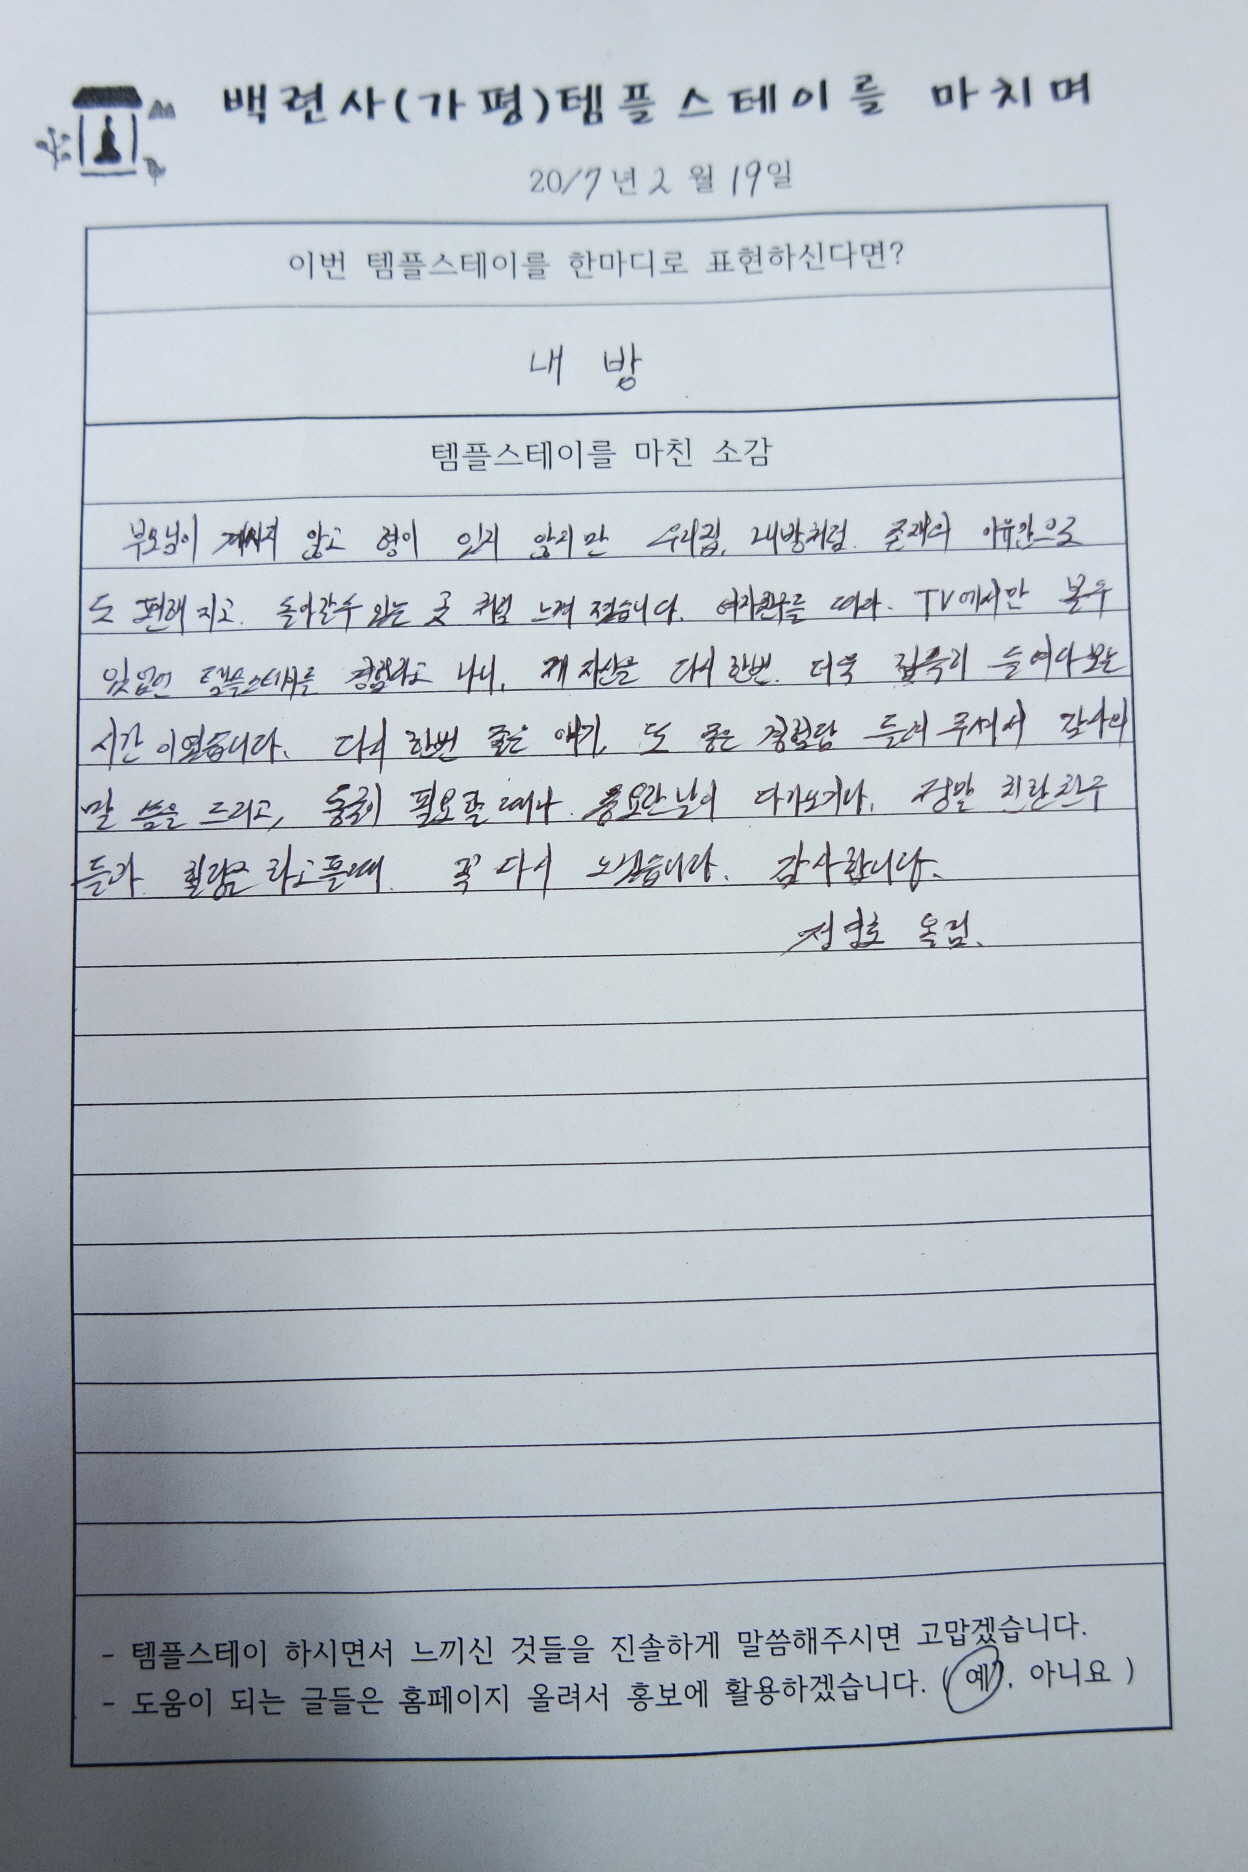 백련사(가평)템플스테이를 마치며
2017년 2월 19일
이번 템플스테이를 한마디로 표현하신다면?
내 방
템플스테이를 마친 소감
부모님이 계시지 않고 형이 있지 않지만 우리집, 내방처럼. 존재의 이유만으로
도 편해 지고. 돌아갈수 있는 곳 처럼 느껴 졌습니다. 여자친구를 따라. TV에서만 볼수
있었던 템플스테이를 경험하고 나니, 제 자신을 다시 한번. 더욱 깊숙히 들여다 보는
시간 이였습니다. 다시 한번 좋은 얘기, 또 좋은 경험담 들려 주셔서 감사의
말 씀을 드리고, 휴식이 필요할 때나 중요한 날이 다가오거나, 정말 친한친구
들과. 힐링을 하고플때. 꼭 다시 오겠습니다. 감사합니다.
올림.
- 템플스테이 하시면서 느끼신 것들을 진솔하게 말씀해주시면 고맙겠습니다.
- 도움이 되는 글들은 홈페이지 올려서 홍보에 활용하겠습니다. ( 예, 아니요 )